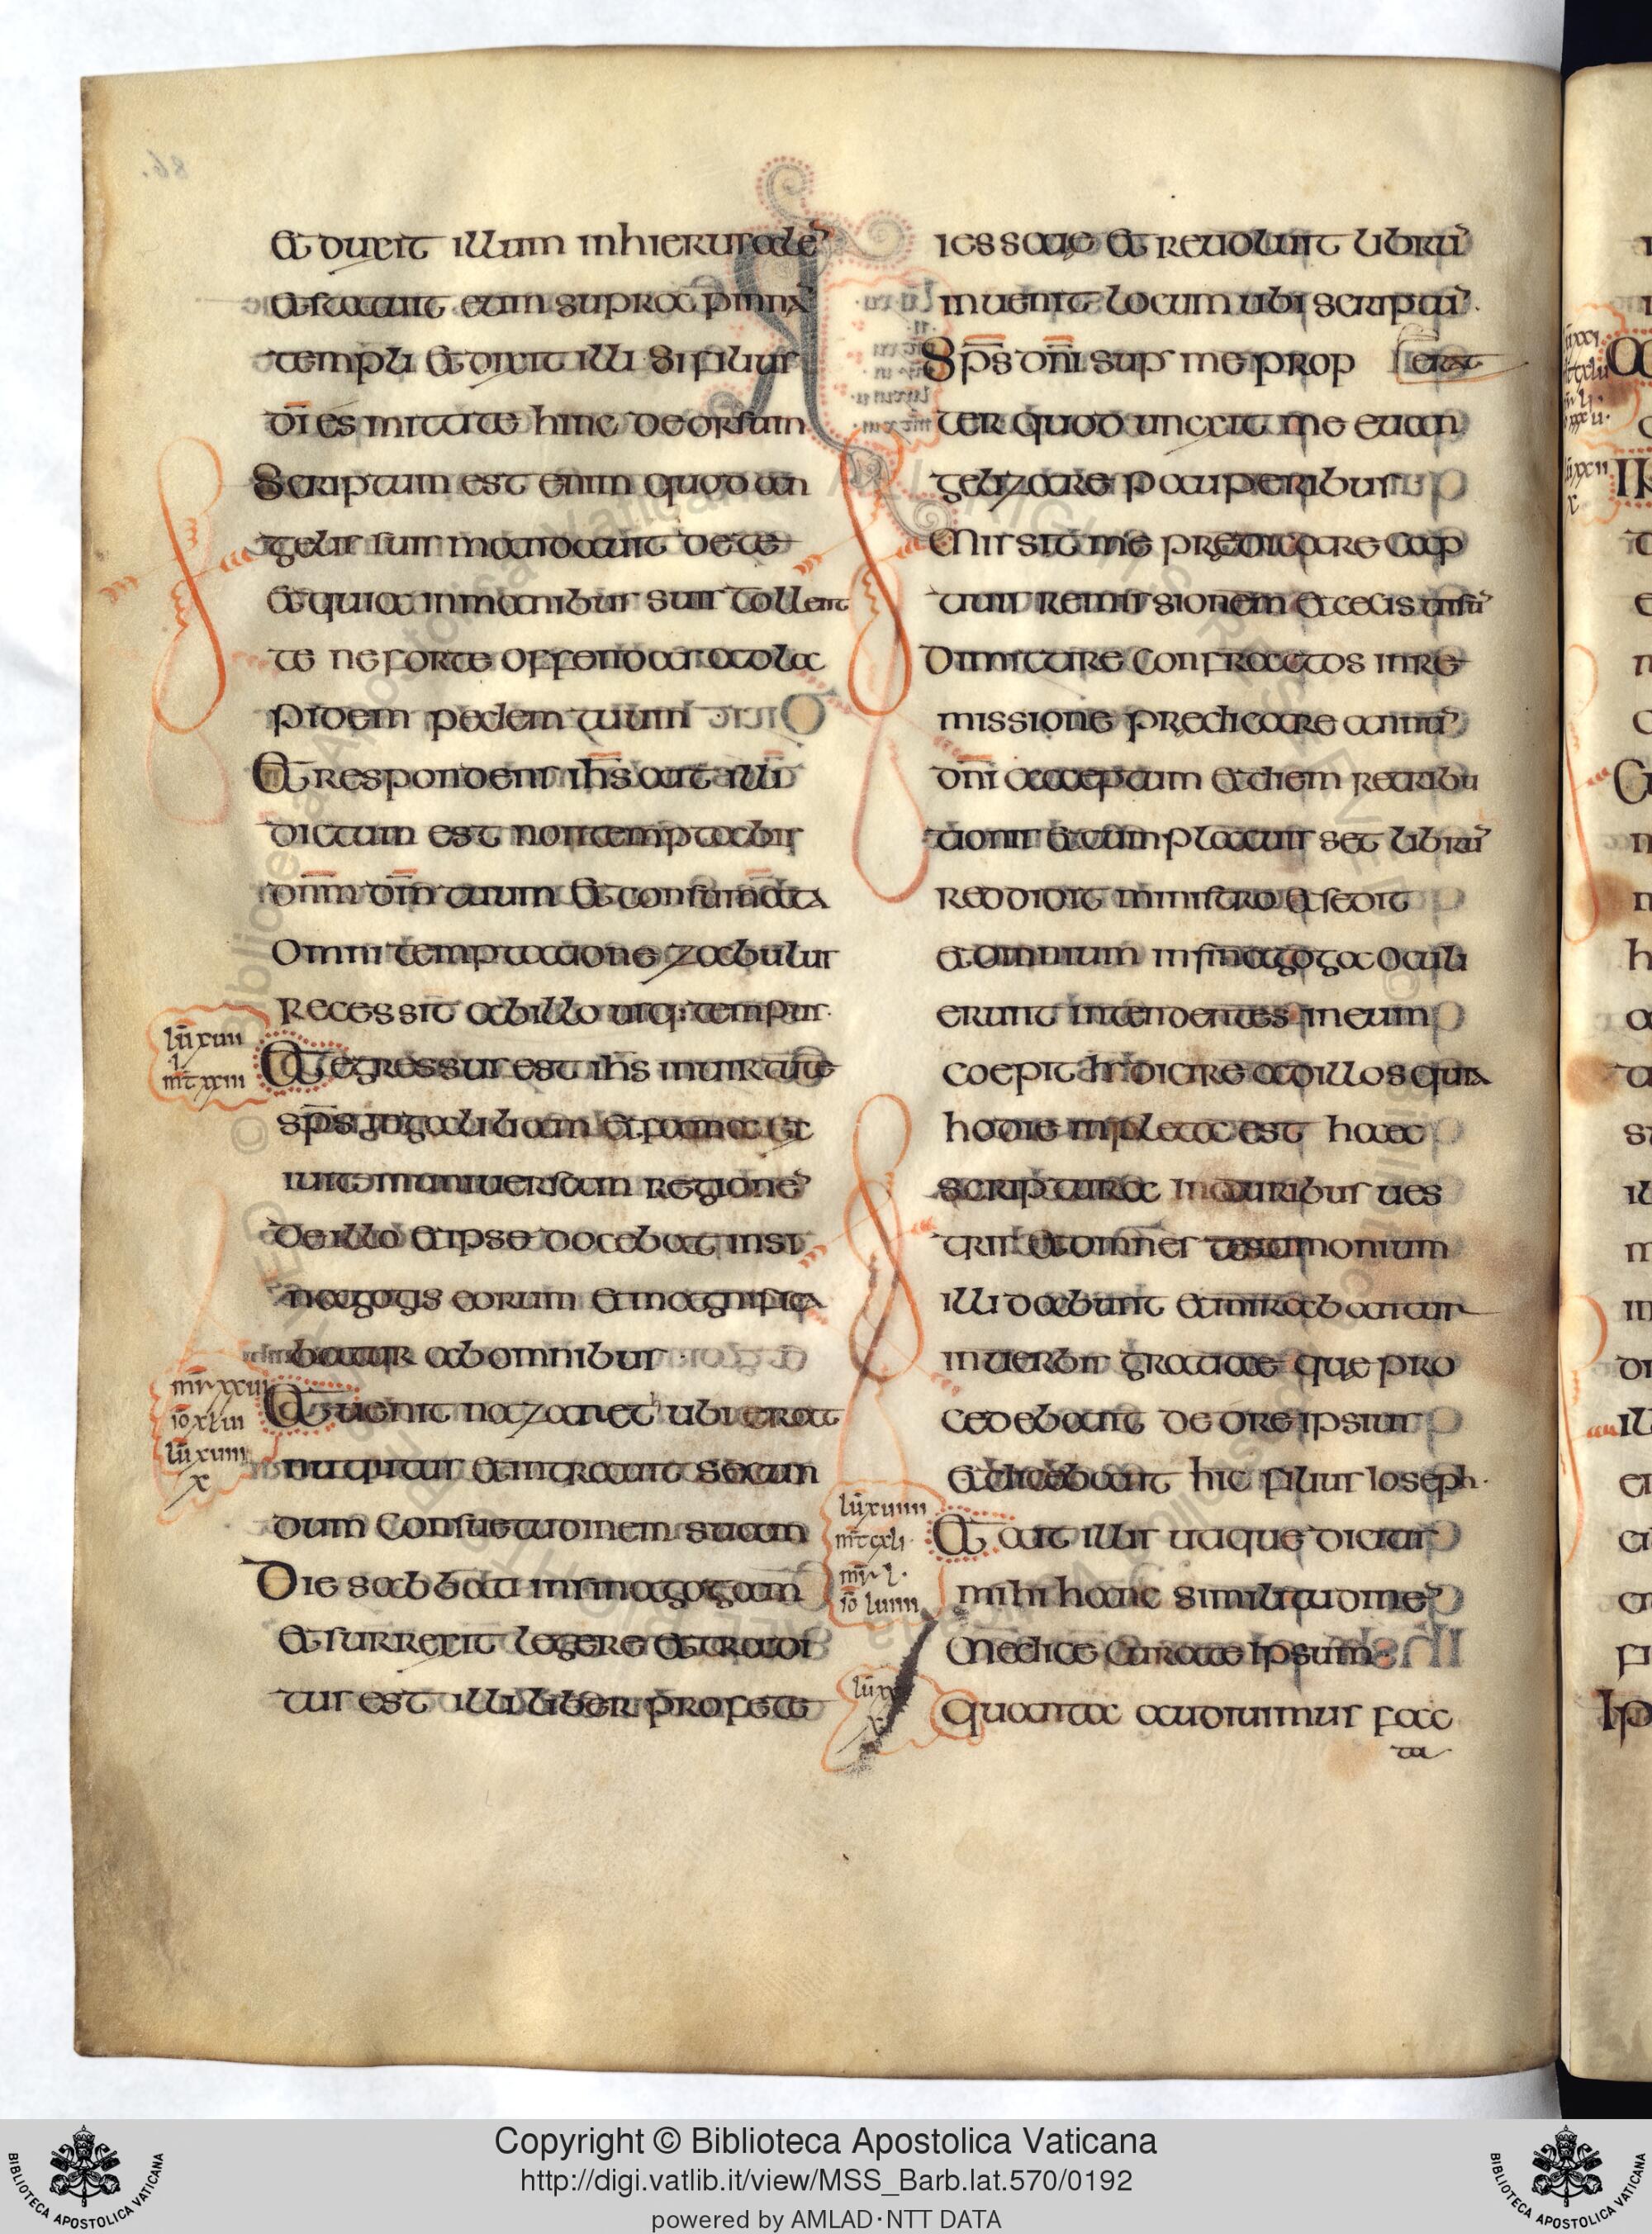 et duxit illum inhierusale͂
et statuit eum supra pinna͂
templi et dixit illi si filius
dī es mitte te hinc deorsum
Scriptum est enim quod an
gelis suis mandauit de te
et quia inmanibus suis tollent
te ne forte offendas adola
pidem pedem tuum
Et respondens ihs ait illi
dictum est nontemptabis
dnm dm tuum et consummata
Omni temptatione zabulus
Recessit abillo usq: tempus.
lū xuii
mt xxiii
Et egressus est ihs inuirtute
sps ingalileam et fama ex
iuit inuniuersam regione͂
de illo et ipse docebat insi
nagogis eorum et magnifica
batur abomnibus
mr xxui
io xlui
lū xuiii
x
Et uenit nazareth ubi erat
nutritus et intrauit secun
dum consuetudinem suam
Die sabbati insinagogam
et surrexit legere et tradi
tus est illi liber profete
iessaię et reuoluit libru͂
inuenit locum ubi scriptu͂.
Sps dni sups me prop erat
ter quod uncxit me euan
gelizare pauperibus
Missit me prędicare cap
tiuis remissionem et cecis uisu͂
Dimittere confractos inre
missione prędicare annu͂
dni acceptum et diem retribu
tionis et cum plicuis set libru͂
reddidit ministro et sedit
et omnium insinagoga oculi
erunt intendentes ineum
coepit h dicire adillos quia
hodie inpleta est haec
scriptura inauribus ues
tris et omnes testimonium
illi dabunt et mirabantur
inuerbis gratiae quę pro
cedebant de ore ipsius
et dicebant hic filius ioseph.
lū xuiiii
mt cxli.
mr l.
io luiiii
Et ait illis utique dicitis
mihi hanc similitudine͂
lū xx
x
Medice cura te ipsum.
Quanta audiuimus fac
ta
Copyright © Biblioteca Apostolica Vaticana
http://digi.vatlib.it/view/MSS_Barb.lat.570/0192
powered by AMLAD·NTT DATA
BIBLIOTECA APOSTOLICA VATICANA
BIBLIOTECA APOSTOLICA VATICANA